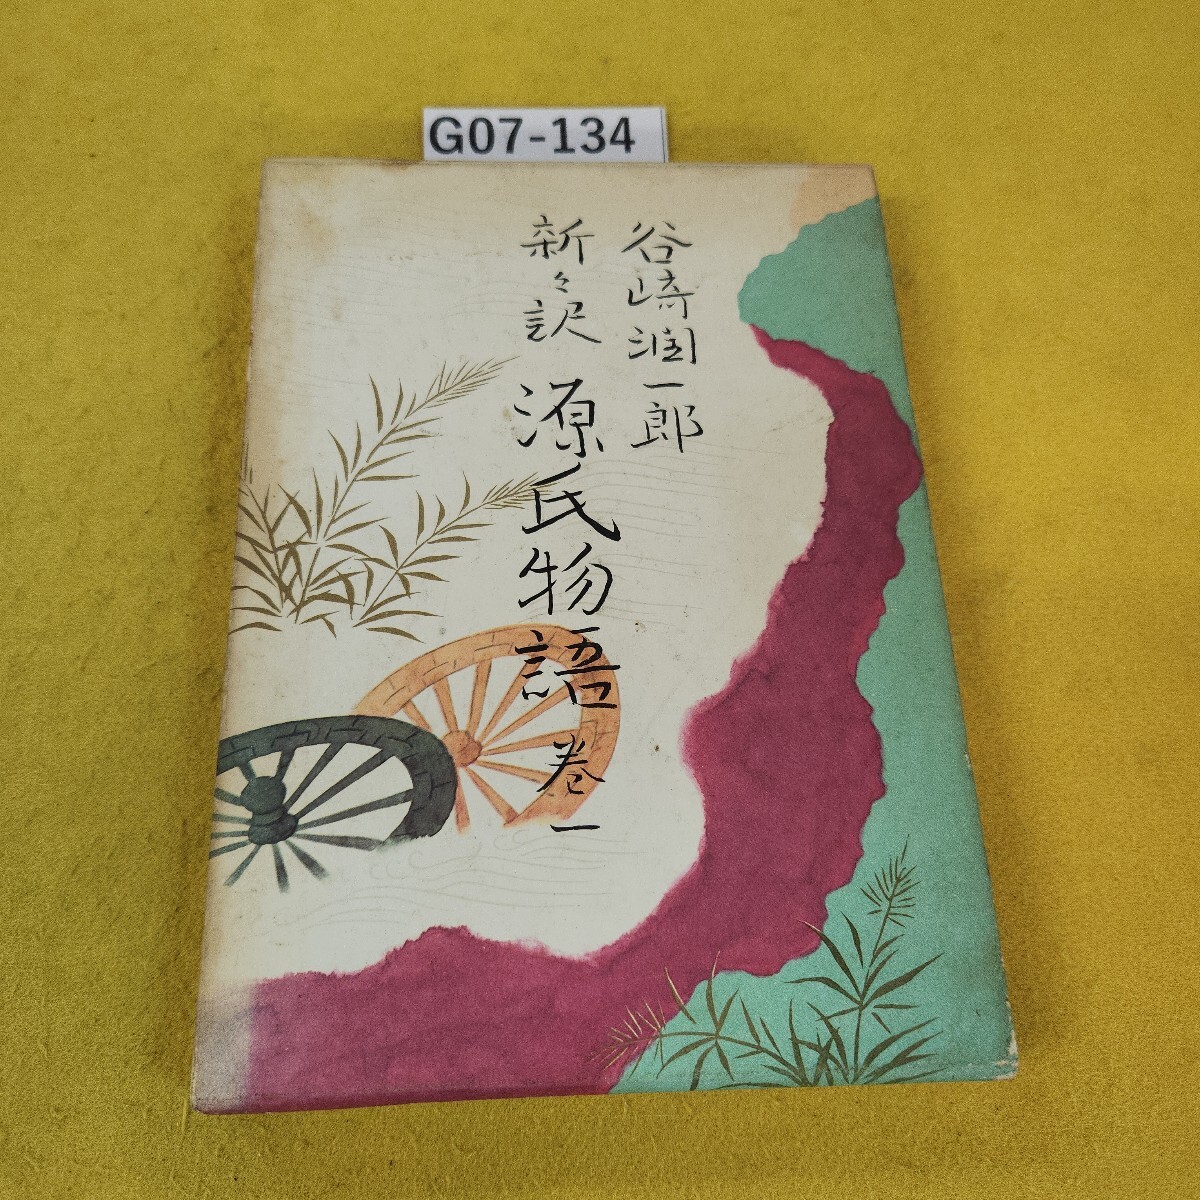 G07-134
谷崎潤一郎
新々訳 源氏物語 巻一